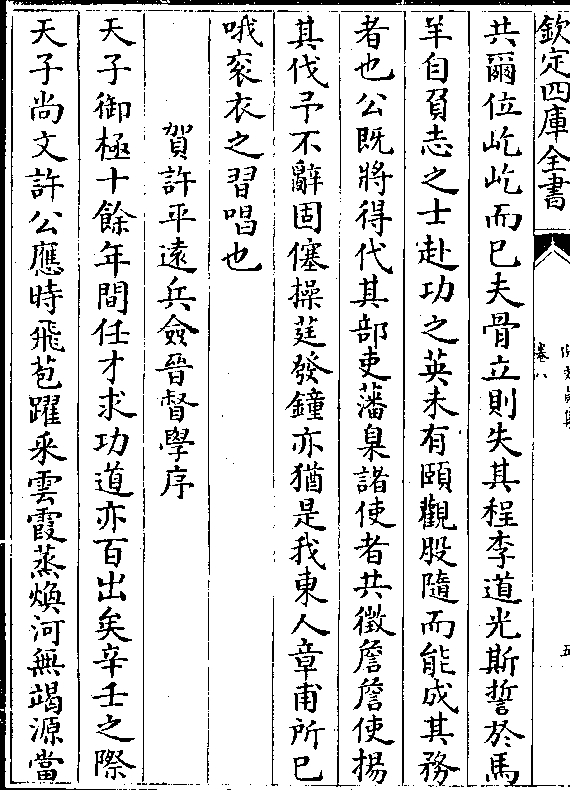 欽定四庫全書
卷八
共爾位屹屹而已夫骨立則失其程李道光斯誓於馬
羊自負志之士赴功之英未有頤觀股隨而能成其務
者也公既將得代其部吏藩臬諸使者共徴詹詹使揚
其伐予不辭固僿操莛發鐘亦猶是我東人章甫所已
哦衮衣之習唱也
賀許平遠兵僉晉督學序
天子御極十餘年間任才求功道亦百出矣辛壬之際
天子尚文許公應時飛苞躍采雲霞蒸煥河無竭源當